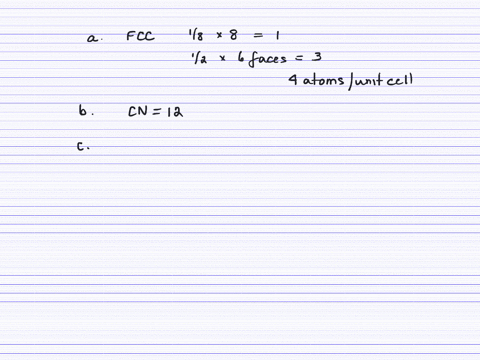 a. FCC 1/8 × 8 = 1
1/2 × 6 faces = 3
4 atoms/unit cell
b. CN = 12
c.